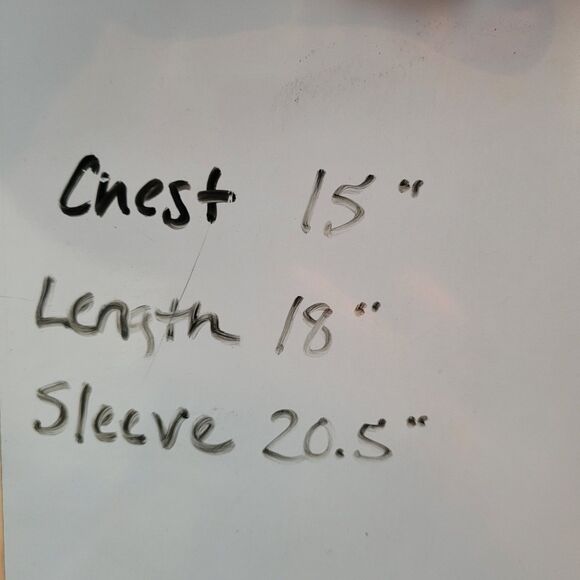 Chest 15"
Length 18"
Sleeve 20.5"